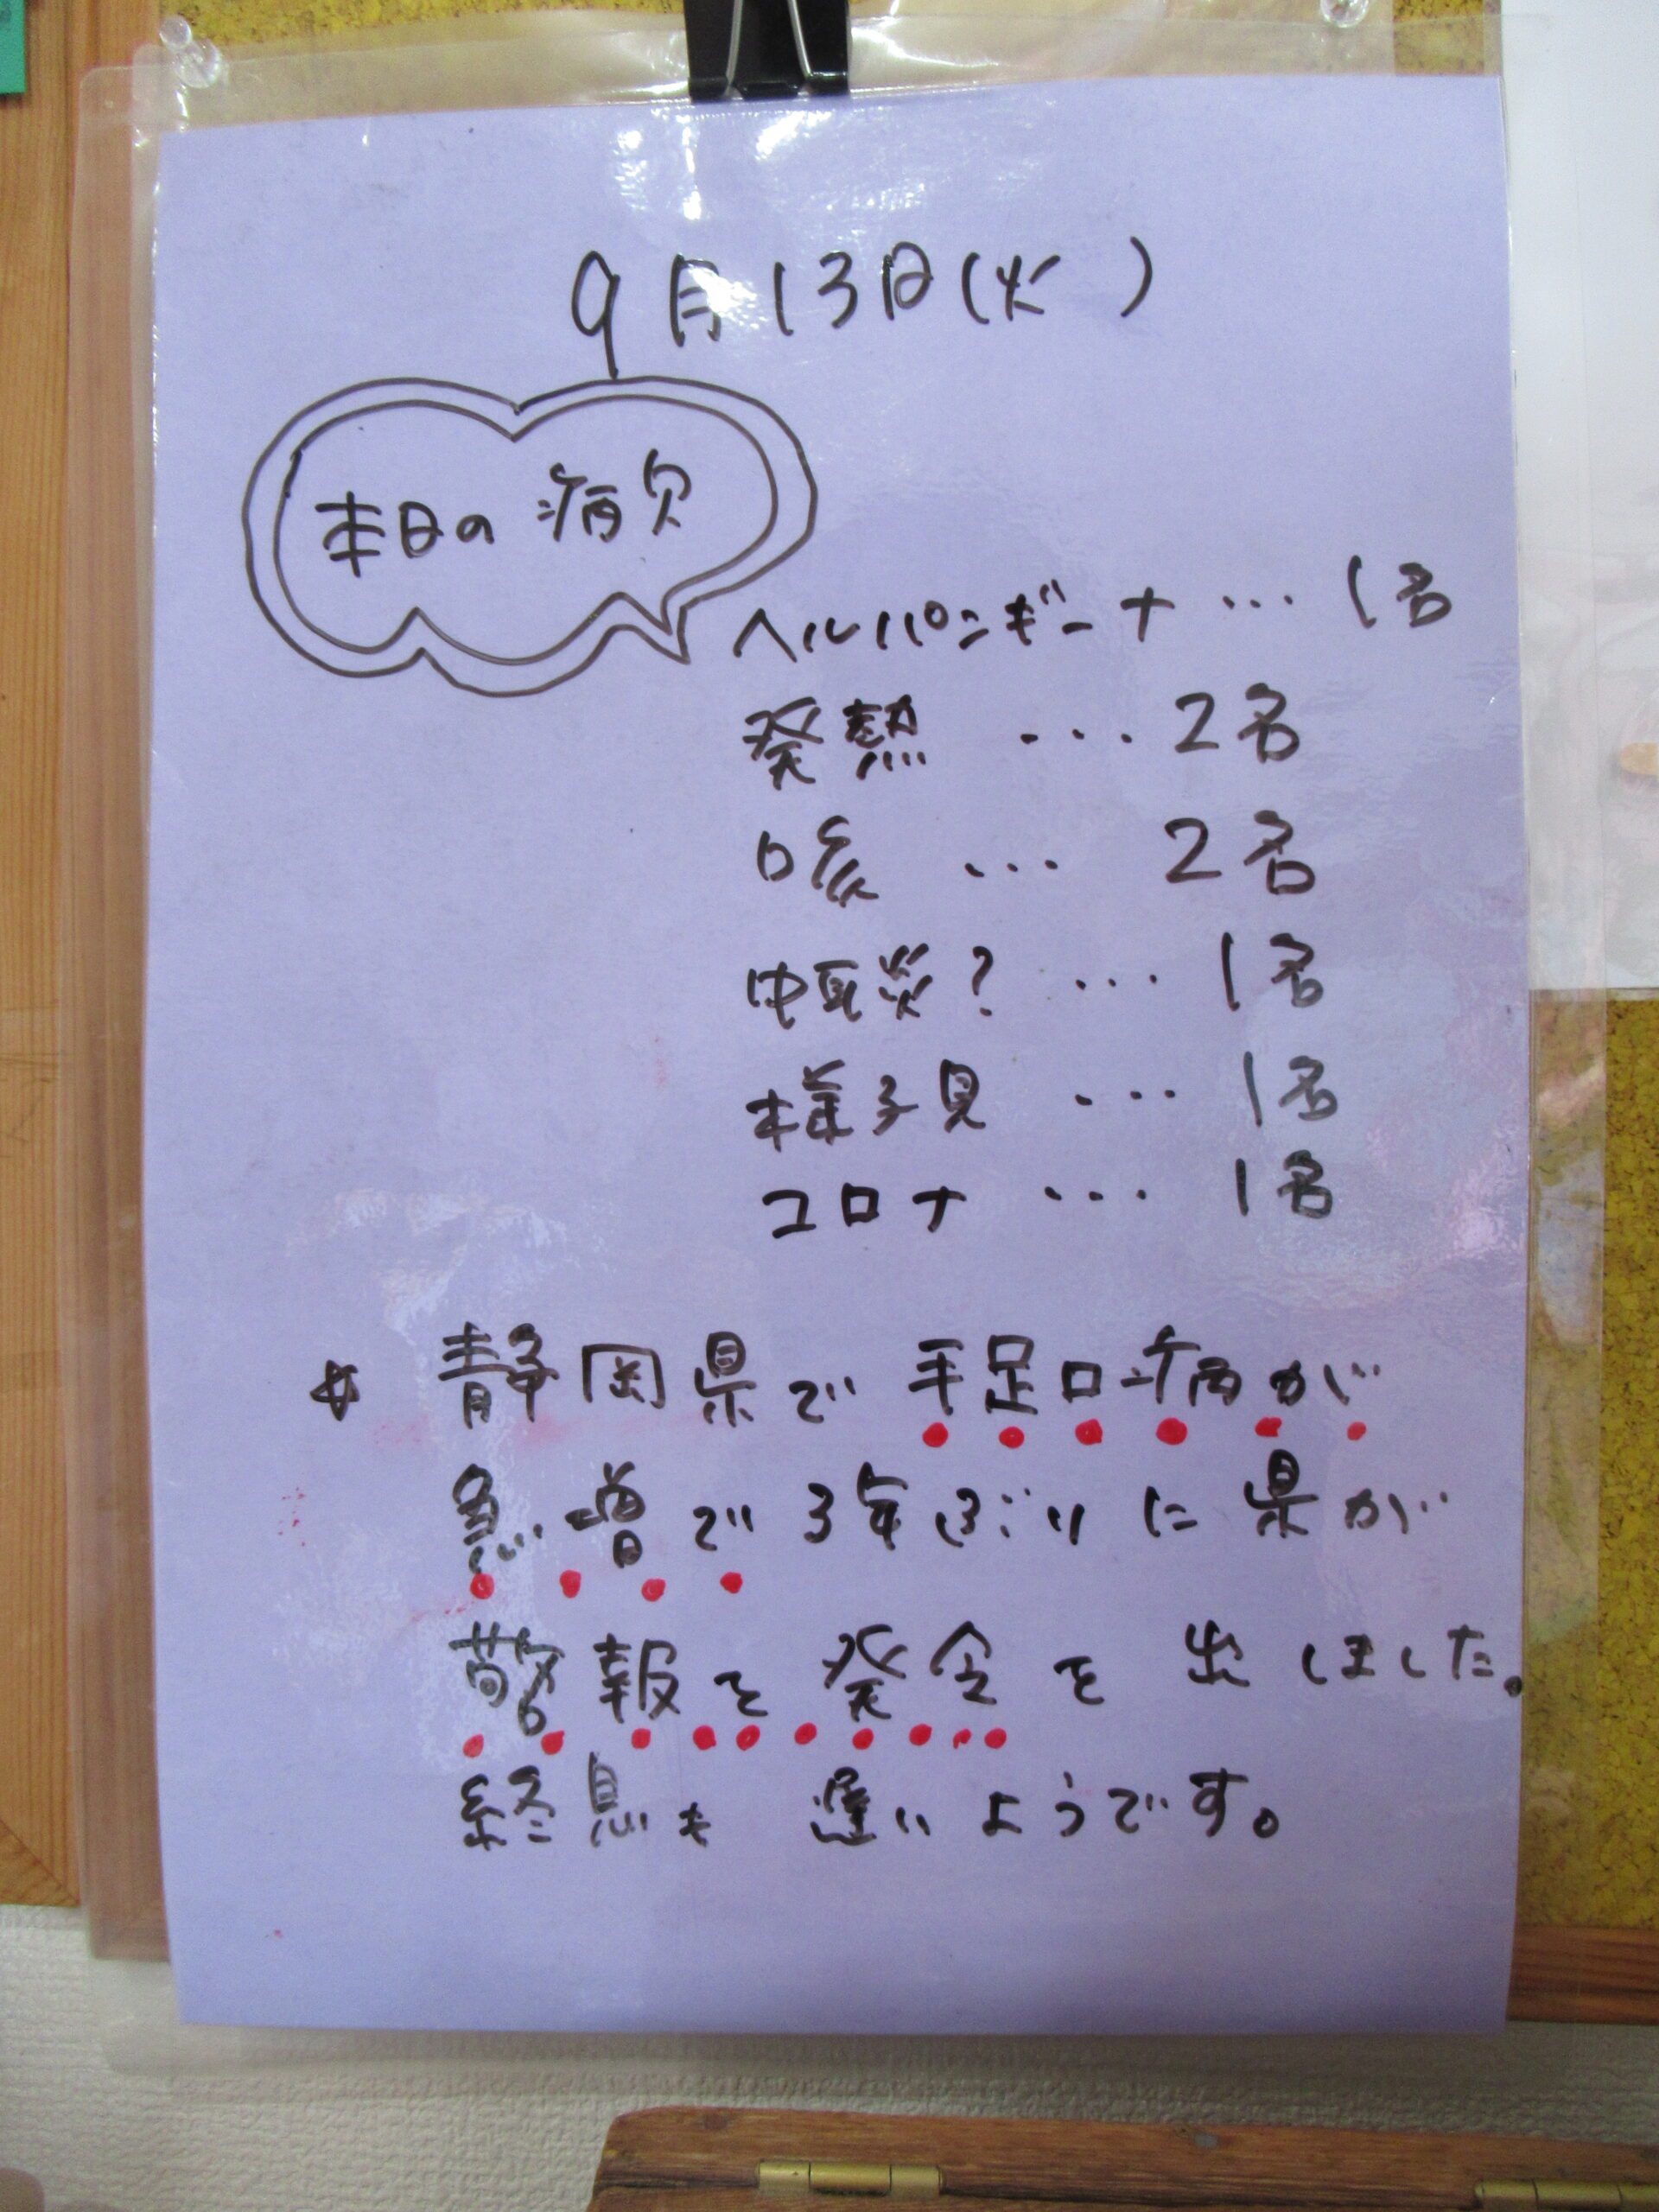 9月13日(火 )
本日の病欠
ヘルパンギーナ … 1名
発熱 … 2名
咳 … 2名
中耳炎? … 1名
様子見 … 1名
コロナ … 1名
☆ 静岡県で 手足口病が
急増で 3年ぶりに 県が
警報を発令を 出しました。
終息も 遅いようです。